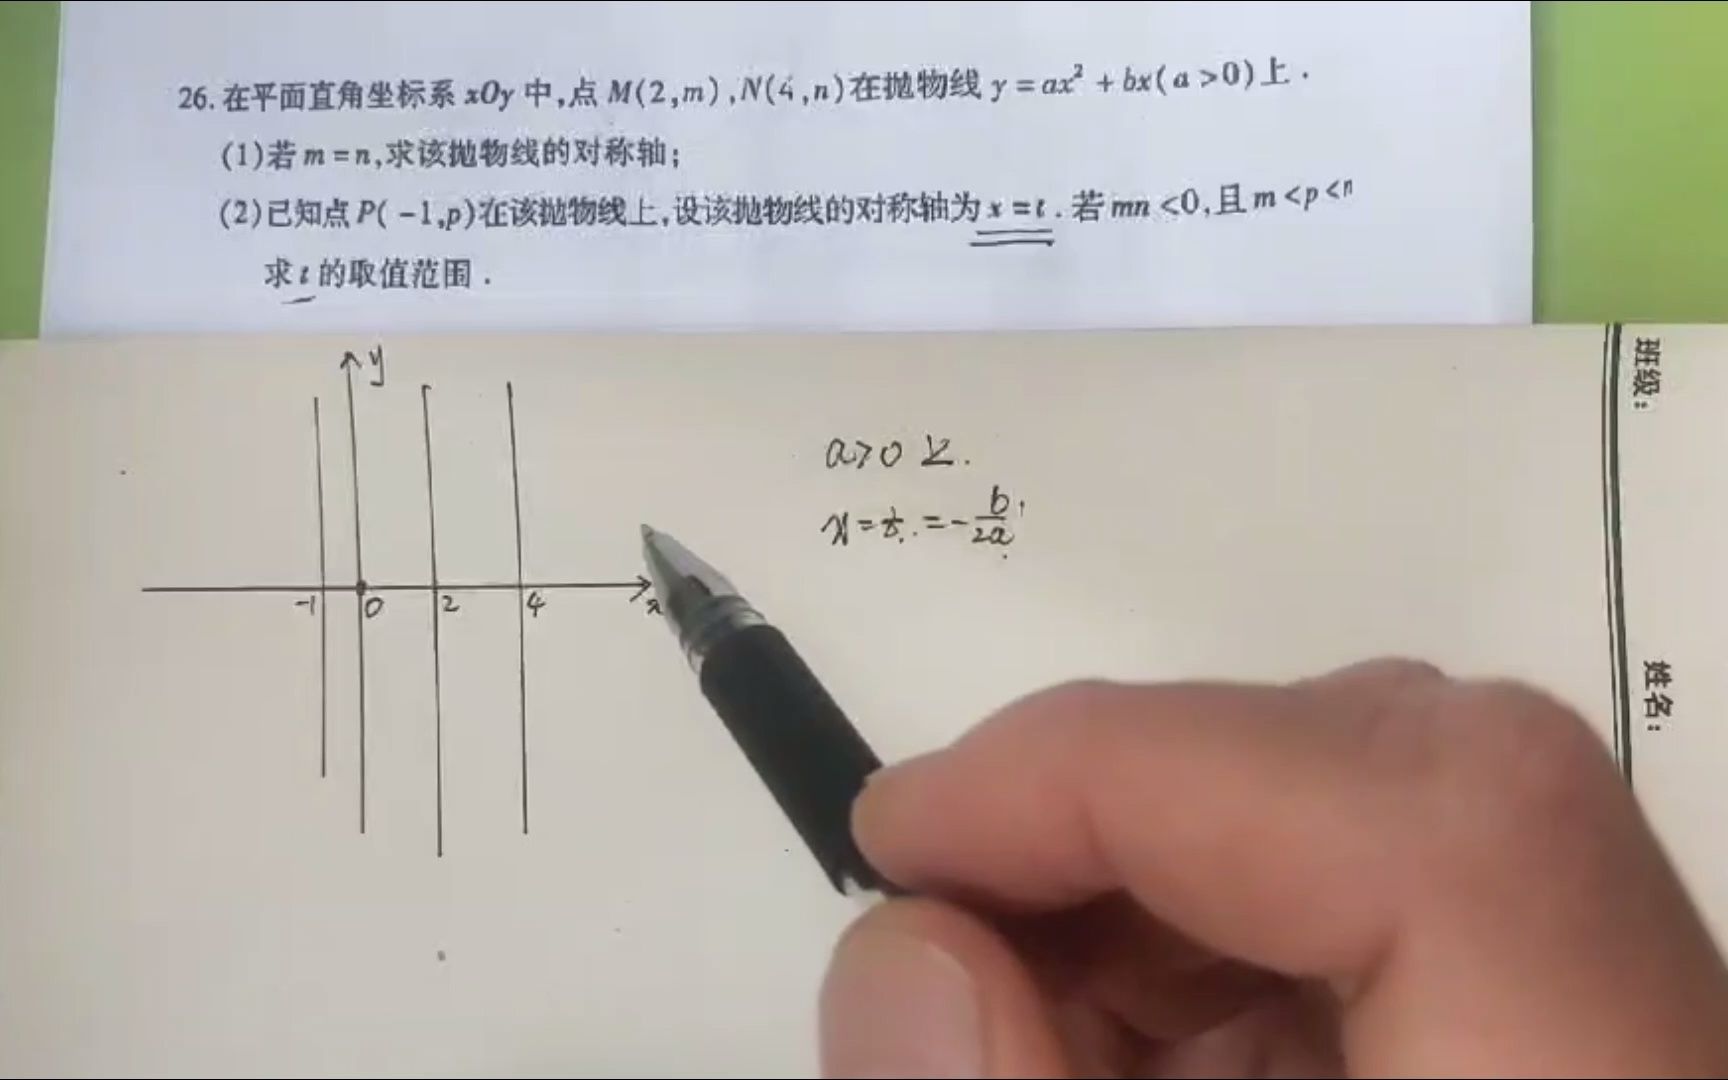 26. 在平面直角坐标系 xOy 中,点 M(2,m),N(4,n)在抛物线 y = ax² + bx(a>0)上.
(1)若 m = n,求该抛物线的对称轴;
(2)已知点 P(-1,p)在该抛物线上,设该抛物线的对称轴为 x = t. 若 mn <0,且 m<p<n
求 t 的取值范围.
y
-1 0 2 4 x
a>0
x=t.=-b/2a
班级:
姓名: